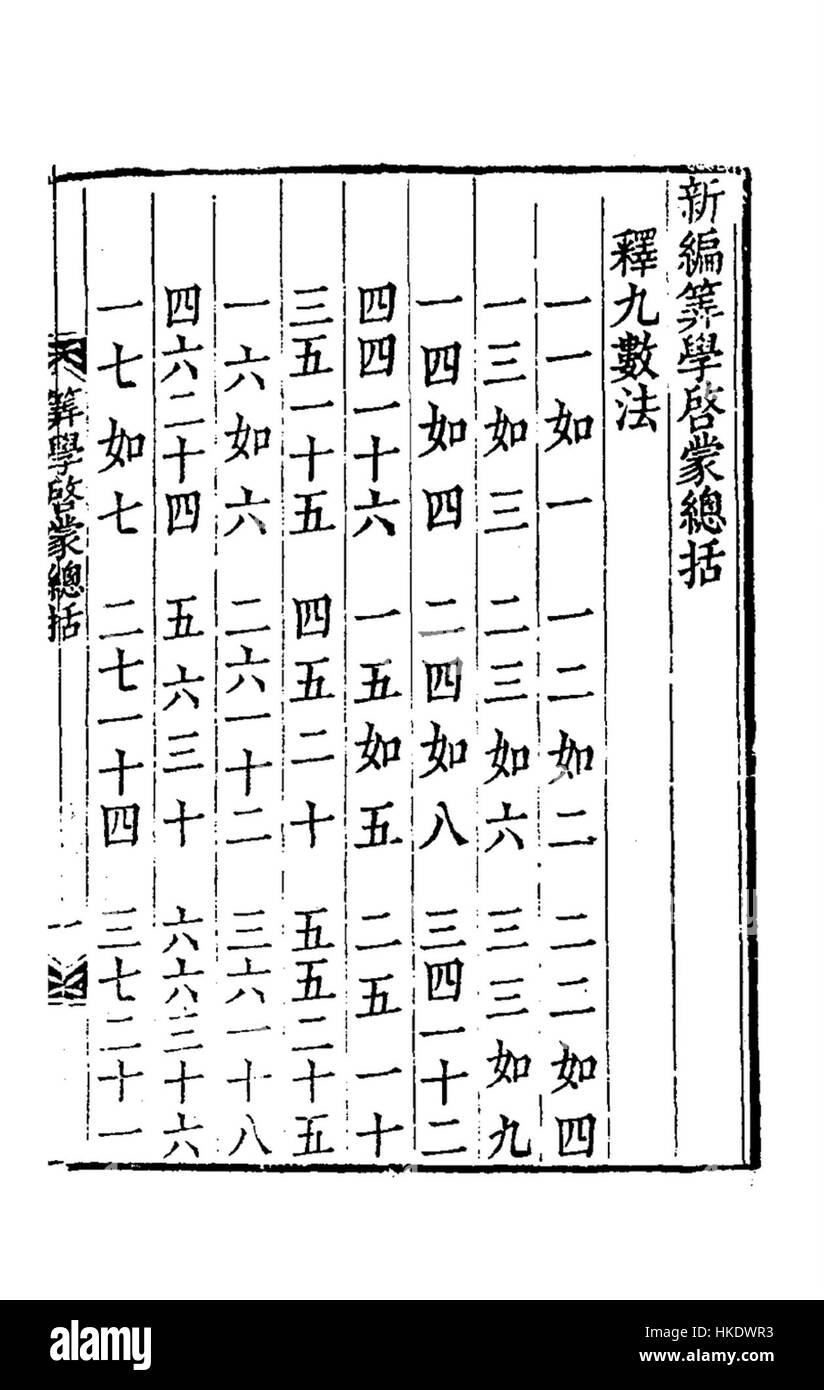 新編筭學啓蒙總括
釋九數法
一一如一 一二如二 二二如四
一三如三 二三如六 三三如九
一四如四 二四如八 三四一十二
四四一十六 一五如五 二五一十
三五一十五 四五二十 五五二十五
一六如六 二六一十二 三六一十八
四六二十四 五六三十 六六三十六
一七如七 二七一十四 三七二十一
筭學啓蒙總括 一
alamy stock photo
HKDWR3
www.alamy.com